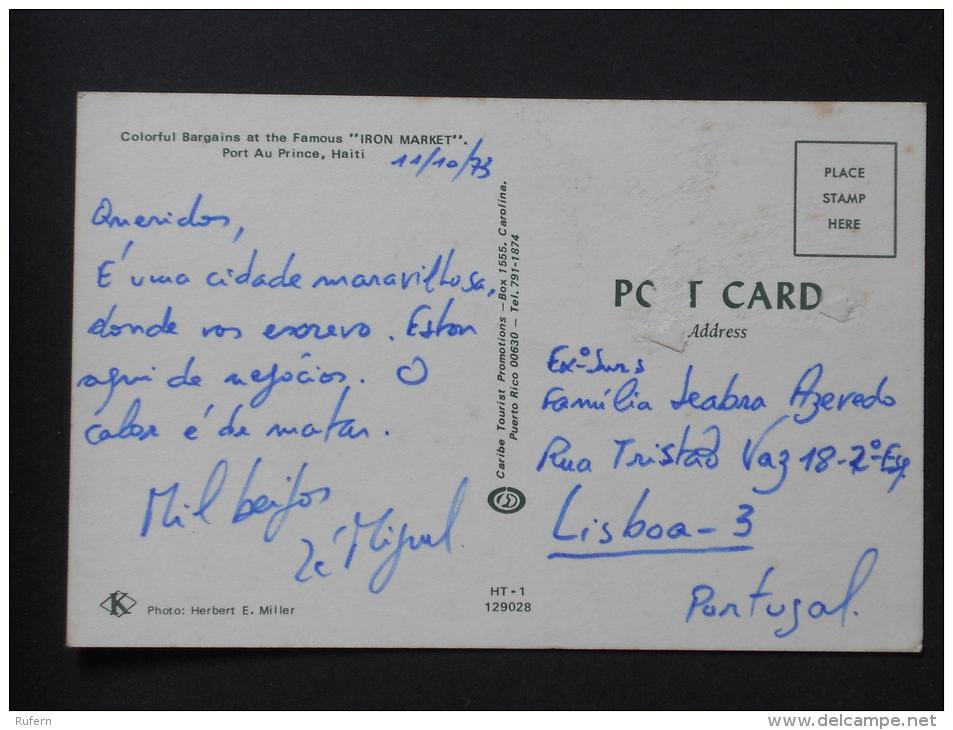 Colorful Bargains at the Famous "IRON MARKET".
Port Au Prince, Haiti
11/10/73
Queridos,
É uma cidade maravilhosa,
donde vos escrevo. Estou
aqui de negócios. O
calor é de matar.
Mil beijos
Zé Miguel.
K
Photo: Herbert E. Miller
HT-1
129028
Caribe Tourist Promotions – Box 1555, Carolina,
Puerto Rico 00630 – Tel. 791-1874
PLACE
STAMP
HERE
PO T CARD
Address
Exº Snrs
Família Seabra Azevedo
Rua Tristão Vaz 18-2º-Esq
Lisboa-3
Portugal.
Rufern
www.delcampe.net